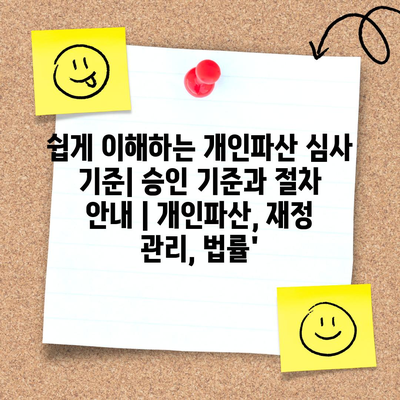 쉽게 이해하는 개인파산 심사
기준| 승인 기준과 절차
안내 | 개인파산, 재정
관리, 법률'